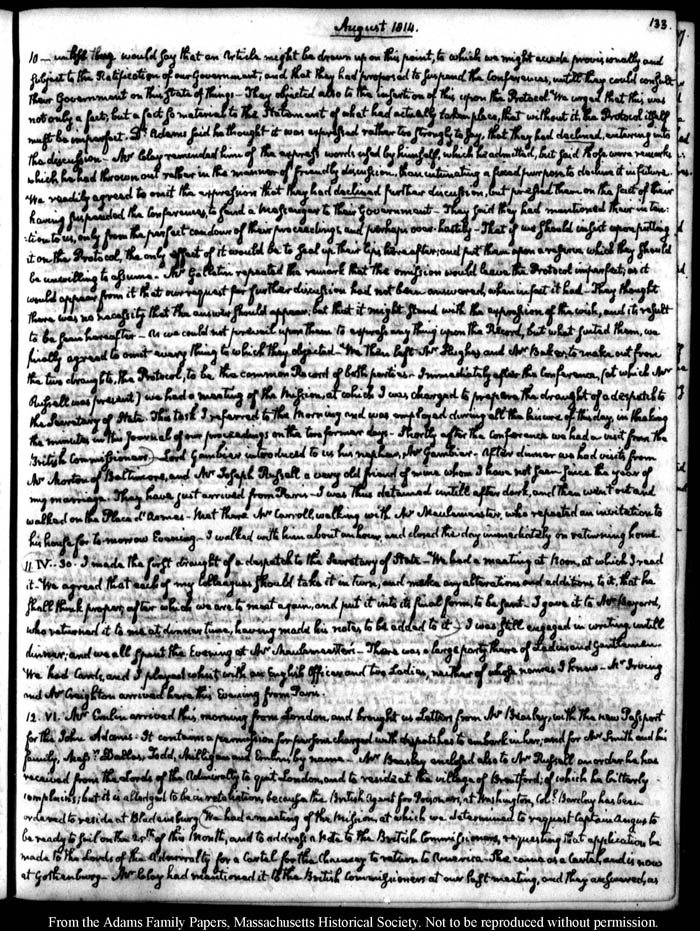 133.
August 1814.
10 — unless they would say that an Article might be drawn up on this point, to which we might accede provisionally and
subject to the Ratification of our Government; and that they had proposed to suspend the Conferences, untill they could consult
their Government on this State of things — They objected also to the insertion of this upon the Protocol. We urged that this was
not only a fact; but a fact so material to the Statement of what had actually taken place, that without it the Protocol itself
must be imperfect. Dr. Adams said he thought it was expressed rather too strongly to say, that they had declined, entering into
the discussion. Mr Clay reminded him of the express words used by himself, which he admitted, but said those were remarks
which he had thrown out rather in the manner of friendly discussion, than intimating a fixed purpose to decline it in future.
We readily agreed to omit the expression that they had declined further discussion, but pressed them on the fact of their
having suspended the Conferences, to send a Messenger to their Government — They said they had mentioned their inten-
tion to us, only from the perfect candour of their proceedings, and perhaps over-hastily — That if we should insist upon putting
it on the Protocol, the only effect of it would be to seal up their lips hereafter, and put them upon a reserve which they should
be unwilling to assume — Mr Gallatin repeated the remark that the omission would leave the Protocol imperfect, as it
would appear from it that our request for further discussion had not been answered, when in fact it had — They thought
there was no necessity that the answer should appear; but that it might stand with the expression of the wish, and its result
to be seen hereafter — As we could not prevail upon them to express any thing upon the Record, but what suited them, we
finally agreed to omit every thing to which they objected — We then left Mr Hughes and Mr Baker, to make out from
the two draughts, the Protocol, to be the common Record of both parties — Immediately after the Conference, (at which Mr
Russell was present) we had a meeting of the Mission, at which I was charged to prepare the draught of a despatch to
the Secretary of State. This task I referred to the Morning and was employed during all the leisure of this day, in making
the minutes in this Journal of our proceedings on the two former days — Shortly after the Conference we had a visit from the
British Commissioners. Lord Gambier introduced to us his nephew, Mr Gambier — After dinner we had visits from
Mr Morton of Baltimore, and Mr Joseph Russell a very old friend of mine whom I have not seen since the year of
my marriage. They have just arrived from Paris — I was thus detained untill after dark, and then went out and
walked on the Place d'Armes — Met there Mr Carroll, walking with Mr Meulemeester, who repeated an invitation to
his house for to-morrow Evening. I walked with him about an hour, and closed the day immediately on returning home.
11. IV:30. I made the first draught of a despatch to the Secretary of State — We had a meeting at Noon, at which I read
it — We agreed that each of my Colleagues should take it in turn, and make any alterations and additions to it, that he
shall think proper; after which we are to meet again, and put it into its final form, to be sent. I gave it to Mr Bayard,
who returned it to me at dinner time, having made his notes to be added to it. I was still engaged in writing untill
dinner; and we all spent the Evening at Mr Meulemeester's — There was a large party there of Ladies and Gentlemen.
We had Cards, and I played whist with an English Officer and two Ladies, neither of whose names I knew. Mr Irving
and Mr Creighton arrived here this Evening from Paris.
12. VI. Mr Emlin arrived this morning from London, and brought us Letters from Mr Beasley, with the new Passport
for the John Adams. It contains a permission for persons charged with dispatches to embark in her; and for Mr Smith and his
family, Messrs Dallas, Todd, Milligan and Emlin; by name — Mr Beasley enclosed also to Mr Russell an order he has
received from the Lords of the Admiralty to quit London, and to reside at the village of Brentford; of which he bitterly
complains; but it is alledged to be in retaliation, because the British Agent for Prisoners, at Washington, Col: Barclay has been
ordered to reside at Bladensburg. We had a meeting of the Mission, at which we determined to request Captain Angus to
be ready to sail on the 25th of this Month, and to address a Note to the British Commissioners, requesting that application be
made to the Lords of the Admiralty for a Cartel for the Chauncey to return to America — She came as a Cartel, and is now
at Gothenburg — Mr Clay had mentioned it to the British Commissioners at our last meeting, and they answered, as
From the Adams Family Papers, Massachusetts Historical Society. Not to be reproduced without permission.